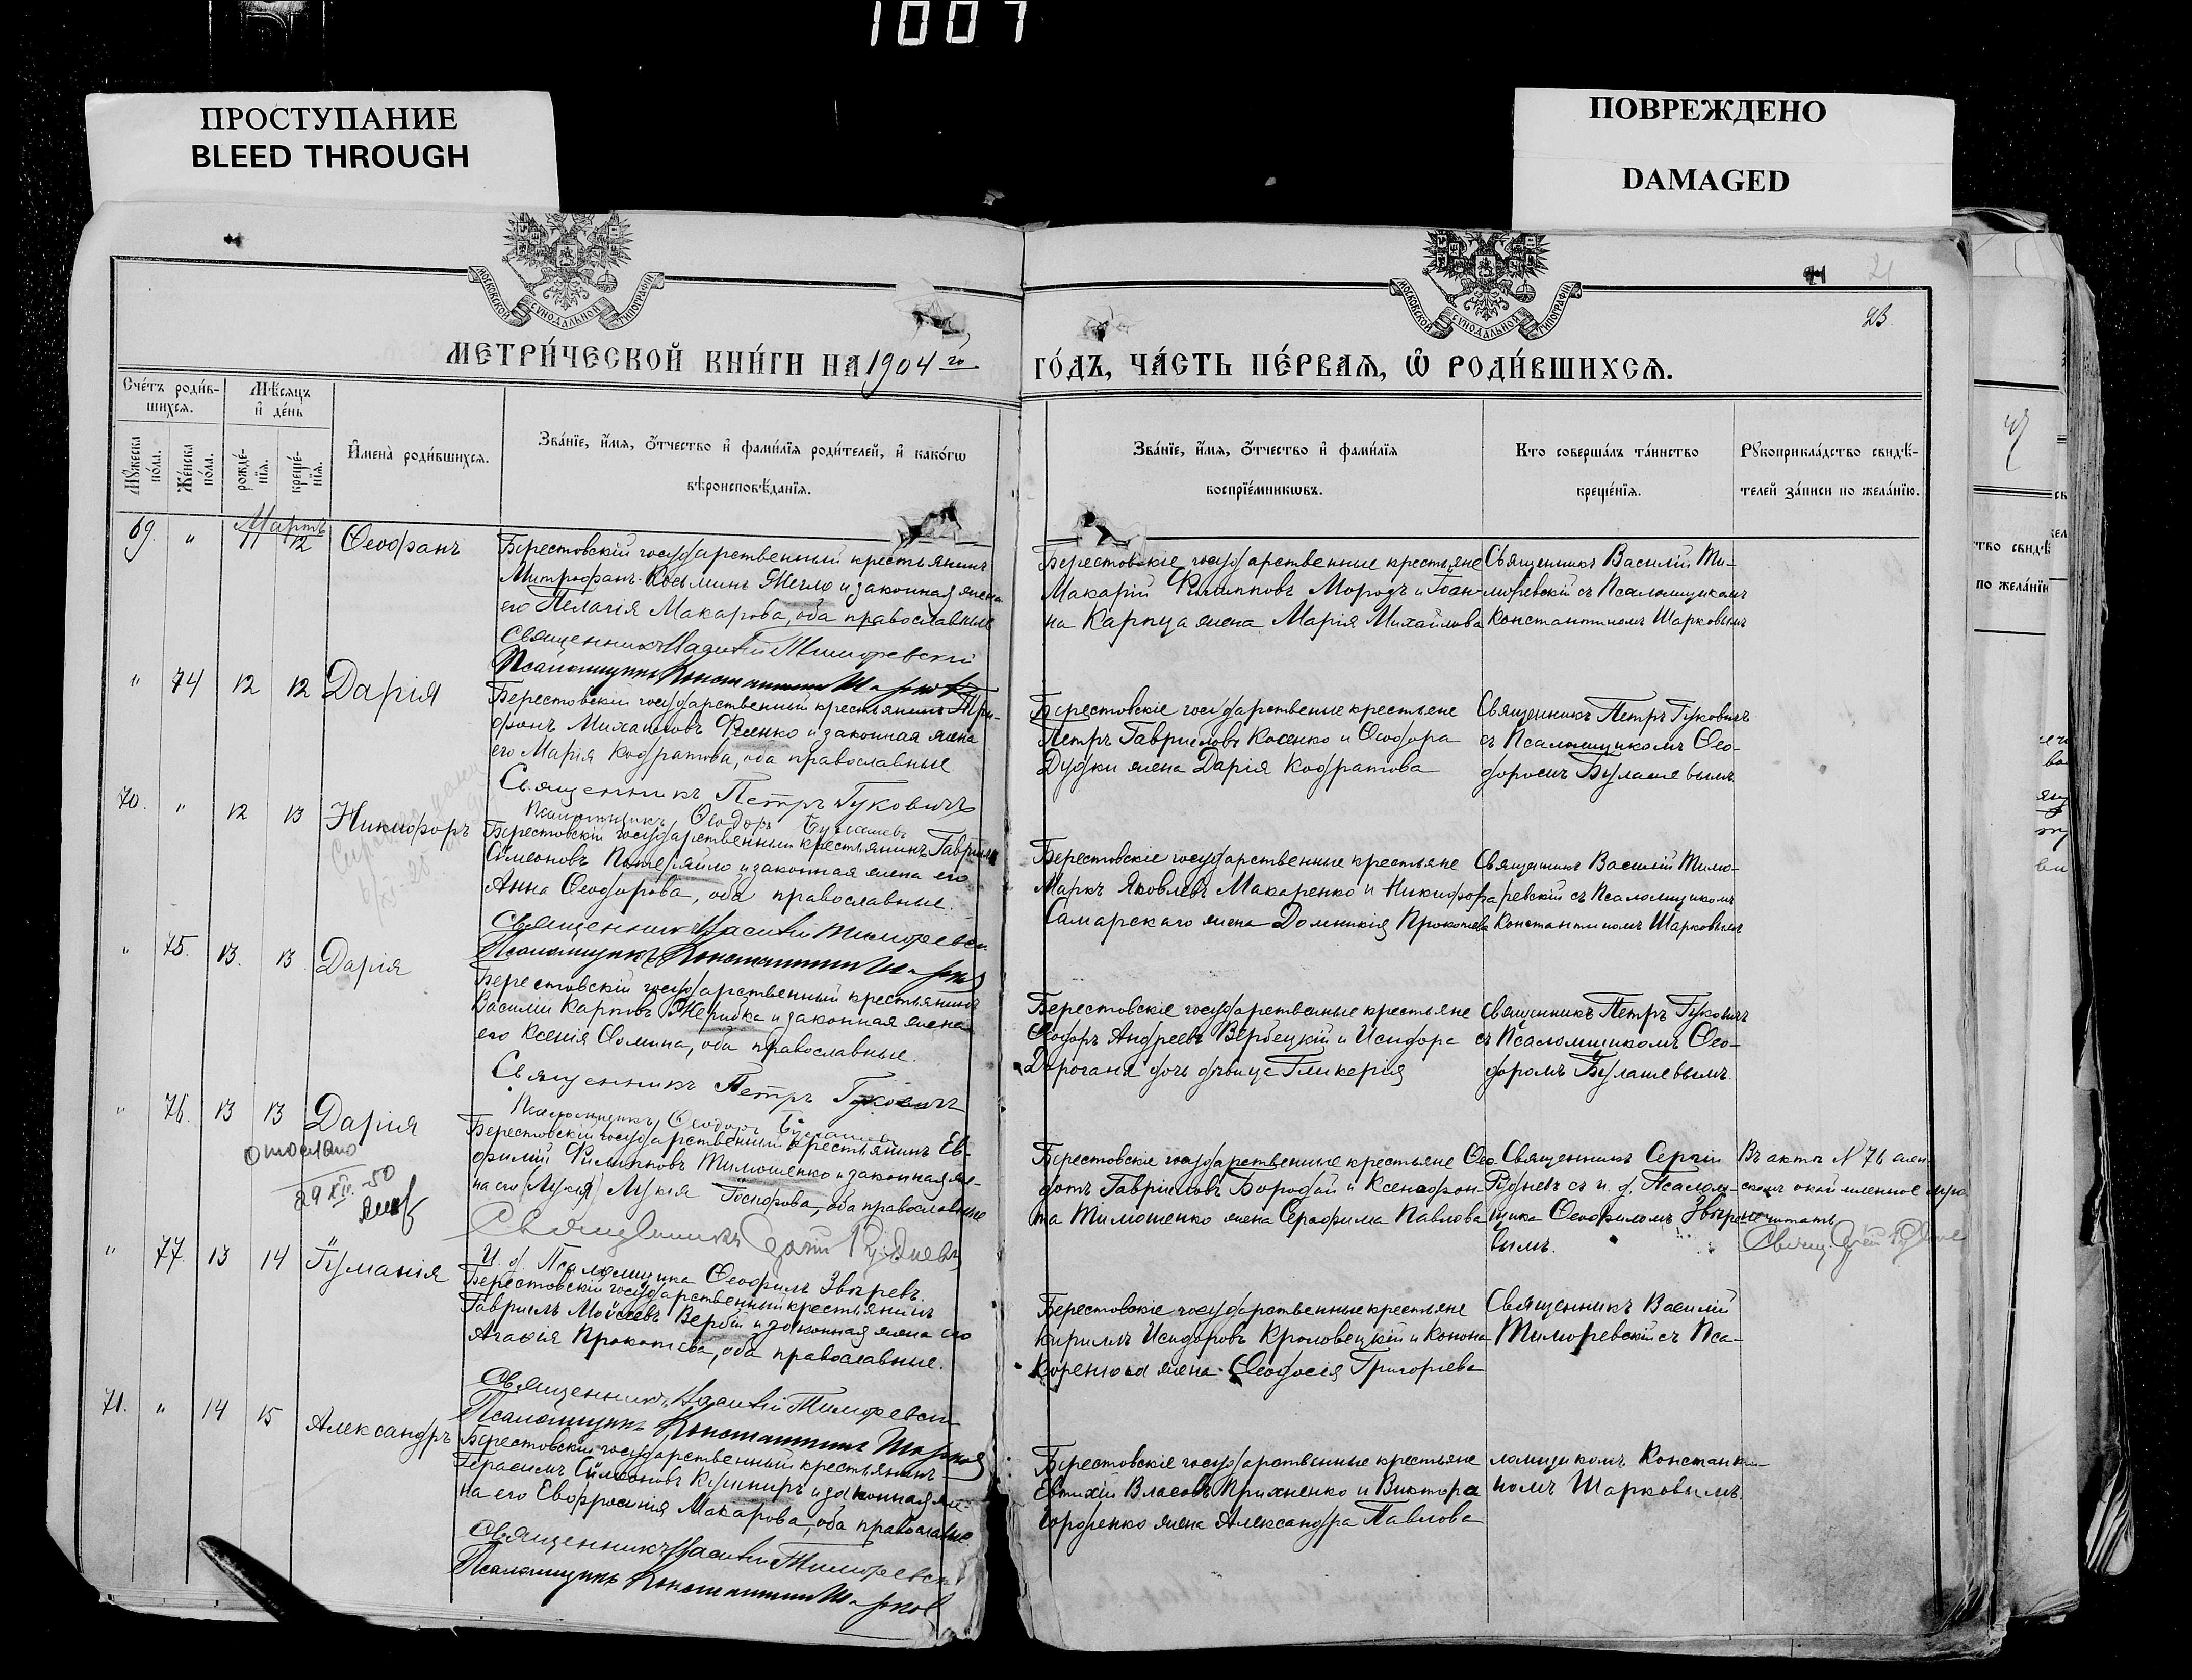 1007
ПРОСТУПАНИЕ
BLEED THROUGH
ПОВРЕЖДЕНО
DAMAGED
МОСКОВСКОЙ СѴНОДАЛЬНОЙ ТИПОГРАФІИ
МОСКОВСКОЙ СѴНОДАЛЬНОЙ ТИПОГРАФІИ
21
23.
МЕТРИ́ЧЕСКОЙ КНИ́ГИ НА 1904 го
ГО́ДЪ, ЧА́СТЬ ПЕ́РВАЯ, Ѡ РОДИ́ВШИХСЯ.
Сче́тъ роди́в-
шихся.
Мѣ́сяцъ
и҆ де́нь
Мꙋ́жеска
по́ла.
Же́нска
по́ла.
рожде́-
нїя.
креще́-
нїя.
И҆мена̀ роди́вшихся.
Зва́нїе, и҆́мя, ѻ҆́тчество и҆ фами́лїя роди́телей, и҆ како́гѡ
вѣроисповѣ́данїя.
Зва́нїе, и҆́мя, ѻ҆́тчество и҆ фами́лїя
воспрїе́мникѡвъ.
Кто соверша́лъ та́инство
креще́нїя.
Рꙋкоприкла́дство свидѣ́-
телей за́писи по жела́нїю.
69. " Мартъ 11 12 Ѳеофанъ
Берестовскій государственный крестьянинъ
Митрофанъ Косьминъ Жегло и законная жена
его Пелагія Макарова, оба православные
Священникъ Василій Тиморевскій
Псаломщикъ Константинъ Шарковъ
Берестовскіе государственные крестьяне
Макарій Филипповъ Морозъ и Іоан-
на Карпуа жена Марія Михайлова
Священникъ Василій Ти-
моревскій съ Псаломщикомъ
Константиномъ Шарковымъ
" 74 12 12 Дарія
Берестовскій государственный крестьянинъ Три-
фонъ Михаиловъ Фенко и законная жена
его Марія Кодратова, оба православные
Священникъ Петръ Гуковичъ
Псаломщикъ Ѳеодоръ Булашевъ
Берестовскіе государственые крестьяне
Петръ Гавриловъ Косенко и Ѳеодора
Дудки жена Дарія Кодратова
Священникъ Петръ Гуковичъ
съ Псаломщикомъ Ѳео-
доромъ Булашевымъ
70. " 12 13 Никифоръ
Берестовскій государственный крестьянинъ Гавриилъ
Симеоновъ Потеряйло и законная жена его
Анна Ѳеодорова, оба православные.
Священникъ Василій Тиморевскій
Псаломщикъ Константинъ Шарковъ
Берестовскіе государственные крестьяне
Маркъ Яковлевъ Макаренко и Никифора
Самарскаго жена Домникія Прокопіева
Священникъ Василій Тимо-
ревскій съ Псаломщикомъ
Константиномъ Шарковымъ
" 75. 13. 13 Дарія
Берестовскій государственный крестьянинъ
Василій Карповъ Жерибка и законная жена
его Ксенія Ѳомина, оба православные.
Священникъ Петръ Гуковичъ
Псаломщикъ Ѳеодоръ Булашевъ
Берестовскіе государственные крестьяне
Ѳеодоръ Андреевъ Вербецкій и Исидора
Дорогана дочь дѣвица Гликерія
Священникъ Петръ Гуковичъ
съ Псаломщикомъ Ѳео-
доромъ Булашевымъ.
" 76. 13 13 Дарія
отослано
29 XII-50
Берестовскій государственный крестьянинъ Ев-
фимій Филипповъ Тимошенко и законная же-
на его (Лукія) Лукія Іосифова, оба православные
Священникъ Сергій Рудневъ
И. д. Псаломщика Ѳеофилъ Звѣревъ.
Берестовскіе государственные крестьяне Ѳео-
дотъ Гавріиловъ Бородай и Ксенофон-
та Тимошенко жена Серафима Павлова
Священникъ Сергій
Рудневъ съ и. д. Псалом-
щика Ѳеофиломъ Звѣре-
вымъ.
Въ актѣ N 76 жен-
" 77. 13 14 Іуліанія
Берестовскій государственный крестьянинъ
Гавріилъ Моисеевъ Вербій и законная жена его
Агафія Прокопіева, оба православные.
Священникъ Василій Тиморевскій
Псаломщикъ Константинъ Шарковъ
Берестовскіе государственные крестьяне
Кириллъ Исидоровъ Кроловецкій и Конона
Коренюка жена Ѳеодосія Григорьева
Священникъ Василій
Тиморевскій съ Пса-
71. " 14 15 Александръ
Берестовскій государственный крестьянинъ
Герасимъ Симеоновъ Кушниръ и законная же-
на его Евфросинія Макарова, оба православные.
Священникъ Василій Тиморевскій
Псаломщикъ Константинъ Шарковъ
Берестовскіе государственные крестьяне
Евтихій Власовъ Прихненко и Виктора
Гордіенко жена Александра Павлова
ломщикомъ Константи-
номъ Шарковымъ.